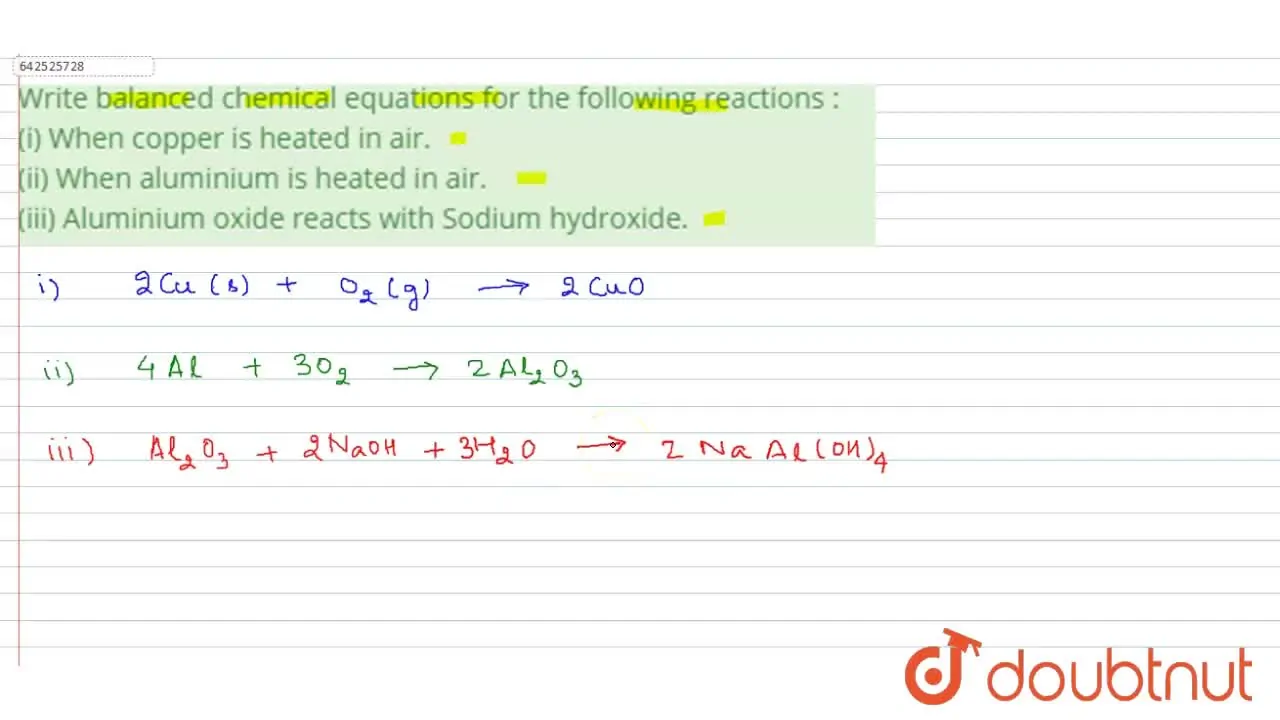 642525728
Write balanced chemical equations for the following reactions :
(i) When copper is heated in air.
(ii) When aluminium is heated in air.
(iii) Aluminium oxide reacts with Sodium hydroxide.
i) 2Cu (s) + O2 (g) → 2CuO
ii) 4Al + 3O2 → 2Al2O3
iii) Al2O3 + 2NaOH + 3H2O → 2NaAl(OH)4
doubtnut